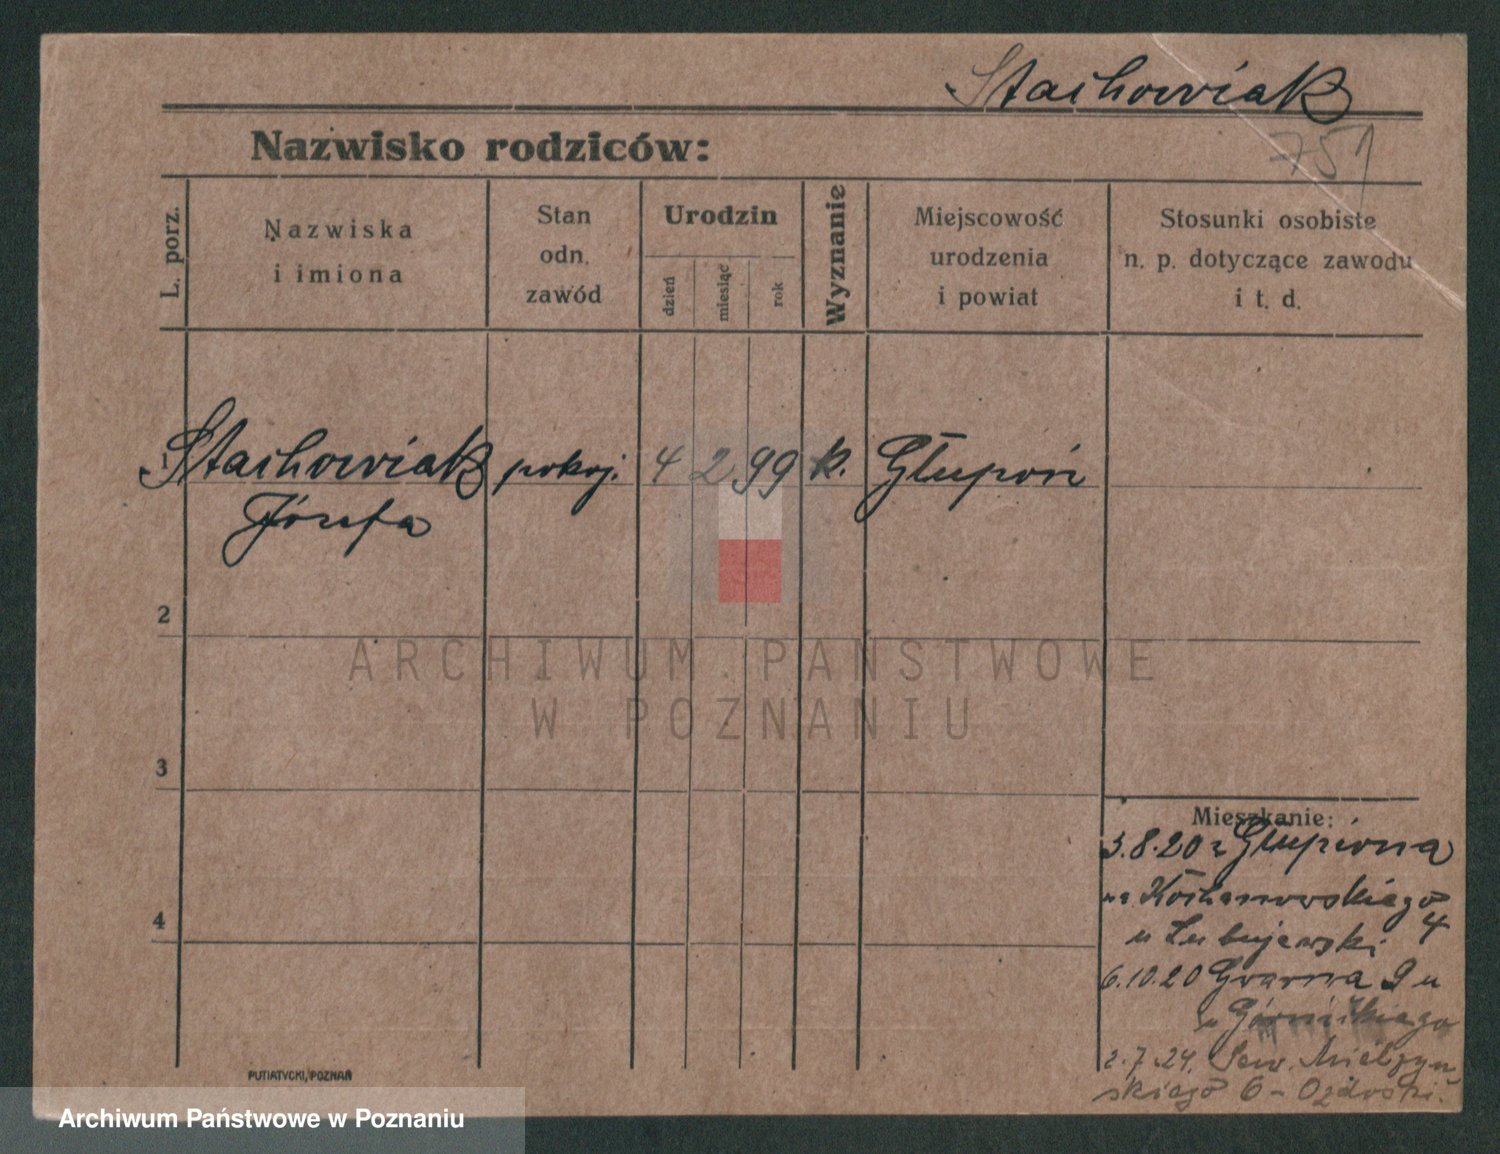 Stachowiak
751
Nazwisko rodziców:
L. porz.
Nazwiska
i imiona
Stan
odn.
zawód
Urodzin
dzień
miesiąc
rok
Wyznanie
Miejscowość
urodzenia
i powiat
Stosunki osobiste
n. p. dotyczące zawodu
i t. d.
1 Stachowiak pokoj. 4 2 99 k. Głupoń
Józefa
2
ARCHIWUM PAŃSTWOWE
W POZNANIU
3
Mieszkanie:
3.8.20 z Głupiona
na Kochanowskiego
4
4
u Lubujewski
6.10.20 Gwarna 9 u
u Górnickiego
2.7.24. Sew. Mielżyń-
skiego 6 -
PUTIATYCKI, POZNAŃ
Archiwum Państwowe w Poznaniu